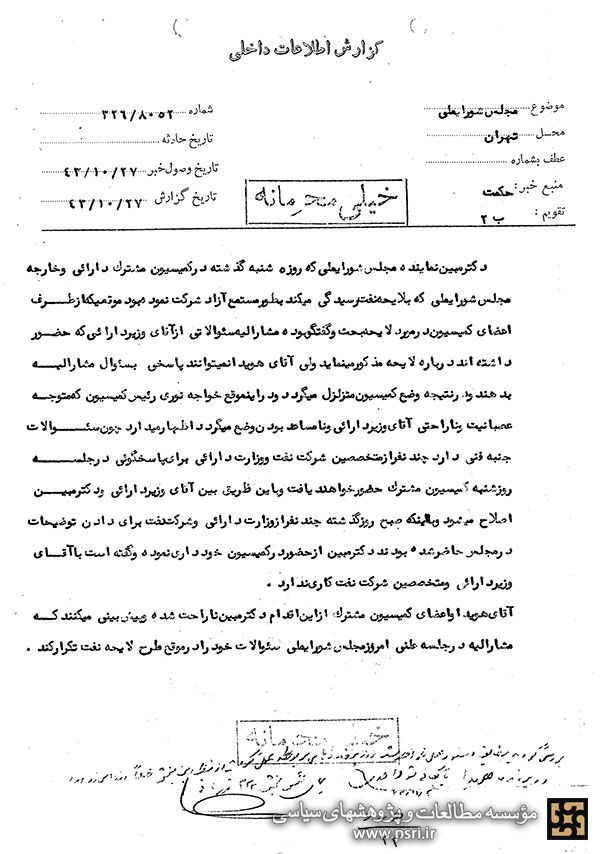 گزارش اطلاعات داخلی
موضوع مجلس شورایعلی
شماره ۳۲۶/۸۰۵۲
محل تهران
تاریخ حادثه
عطف بشماره
تاریخ وصول خبر ۴۳/۱۰/۲۷
منبع خبر: حکمت
تاریخ گزارش ۴۳/۱۰/۲۷
تقویم: ب ۲
خیلی محرمانه
دکترمبین نماینده مجلس شورایعلی که روزه شنبه گذشته درکمیسیون مشترک دارائی وخارجه
مجلس شورایعلی که بلایحه نفت رسیدگی میکند بطورمستمع آزاد شرکت نموده بود موقعیکه ازطرف
اعضای کمیسیون درمورد لایحه بحث وگفتگوبوده مشارالیه سئوالاتی ازآقای وزیردارائی که حضور
داشته اند درباره لایحه مذکورمینماید ولی آقای هویدا نمیتوانند پاسخی بسئوال مشارالیه
بدهند ودرنتیجه وضع کمیسیون متزلزل میگردد ودراینموقع خواجه نوری رئیس کمیسیون که متوجه
عصبانیت وناراحتی آقای وزیردارائی ونامساعد بودن وضع میگردد اظهارمیدارد چون سئوالات
جنبه فنی دارد چند نفرازمتخصصین شرکت نفت ووزارت دارائی برای پاسخگوئی درجلسه
روزشنبه کمیسیون مشترک حضورخواهند یافت وباین طریق بین آقای وزیردارائی ودکترمبین
اصلاح میشود وباینکه صبح روزگذشته چند نفرازوزارت دارائی وشرکت نفت برای دادن توضیحات
درمجلس حاضرشده بودند دکترمبین ازحضوردرکمیسیون خودداری نموده وگفته است باآقای
وزیردارائی ومتخصصین شرکت نفت کاری ندارد .
آقای هویدا واعضای کمیسیون مشترک ازاین اقدام دکترمبین ناراحت شده وپیش بینی میکنند که
مشارالیه درجلسه علنی امروزمجلس شورایعلی سئوالات خود رادرموقع طرح لایحه نفت تکرارکند .
خیلی محرمانه
مؤسسه مطالعات و پژوهشهای سیاسی
www.psri.ir